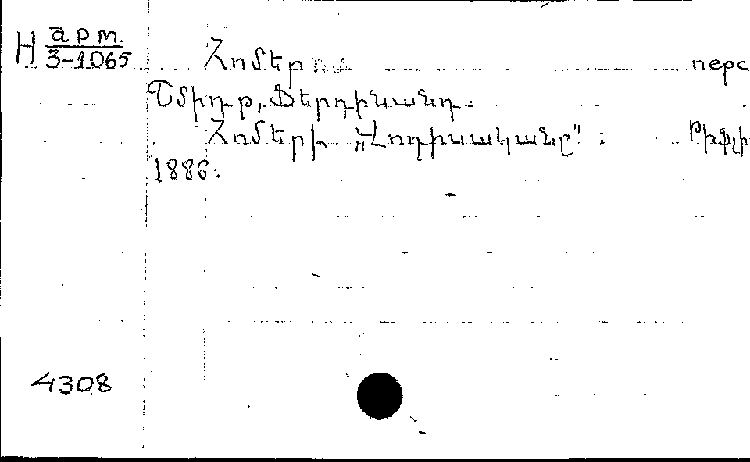 H арт. 3-1065
Հոմերոս перс
Շմիդտ, Ֆերդինանդ.
Հոմերի „Հոդիսականը".
1886.
4308